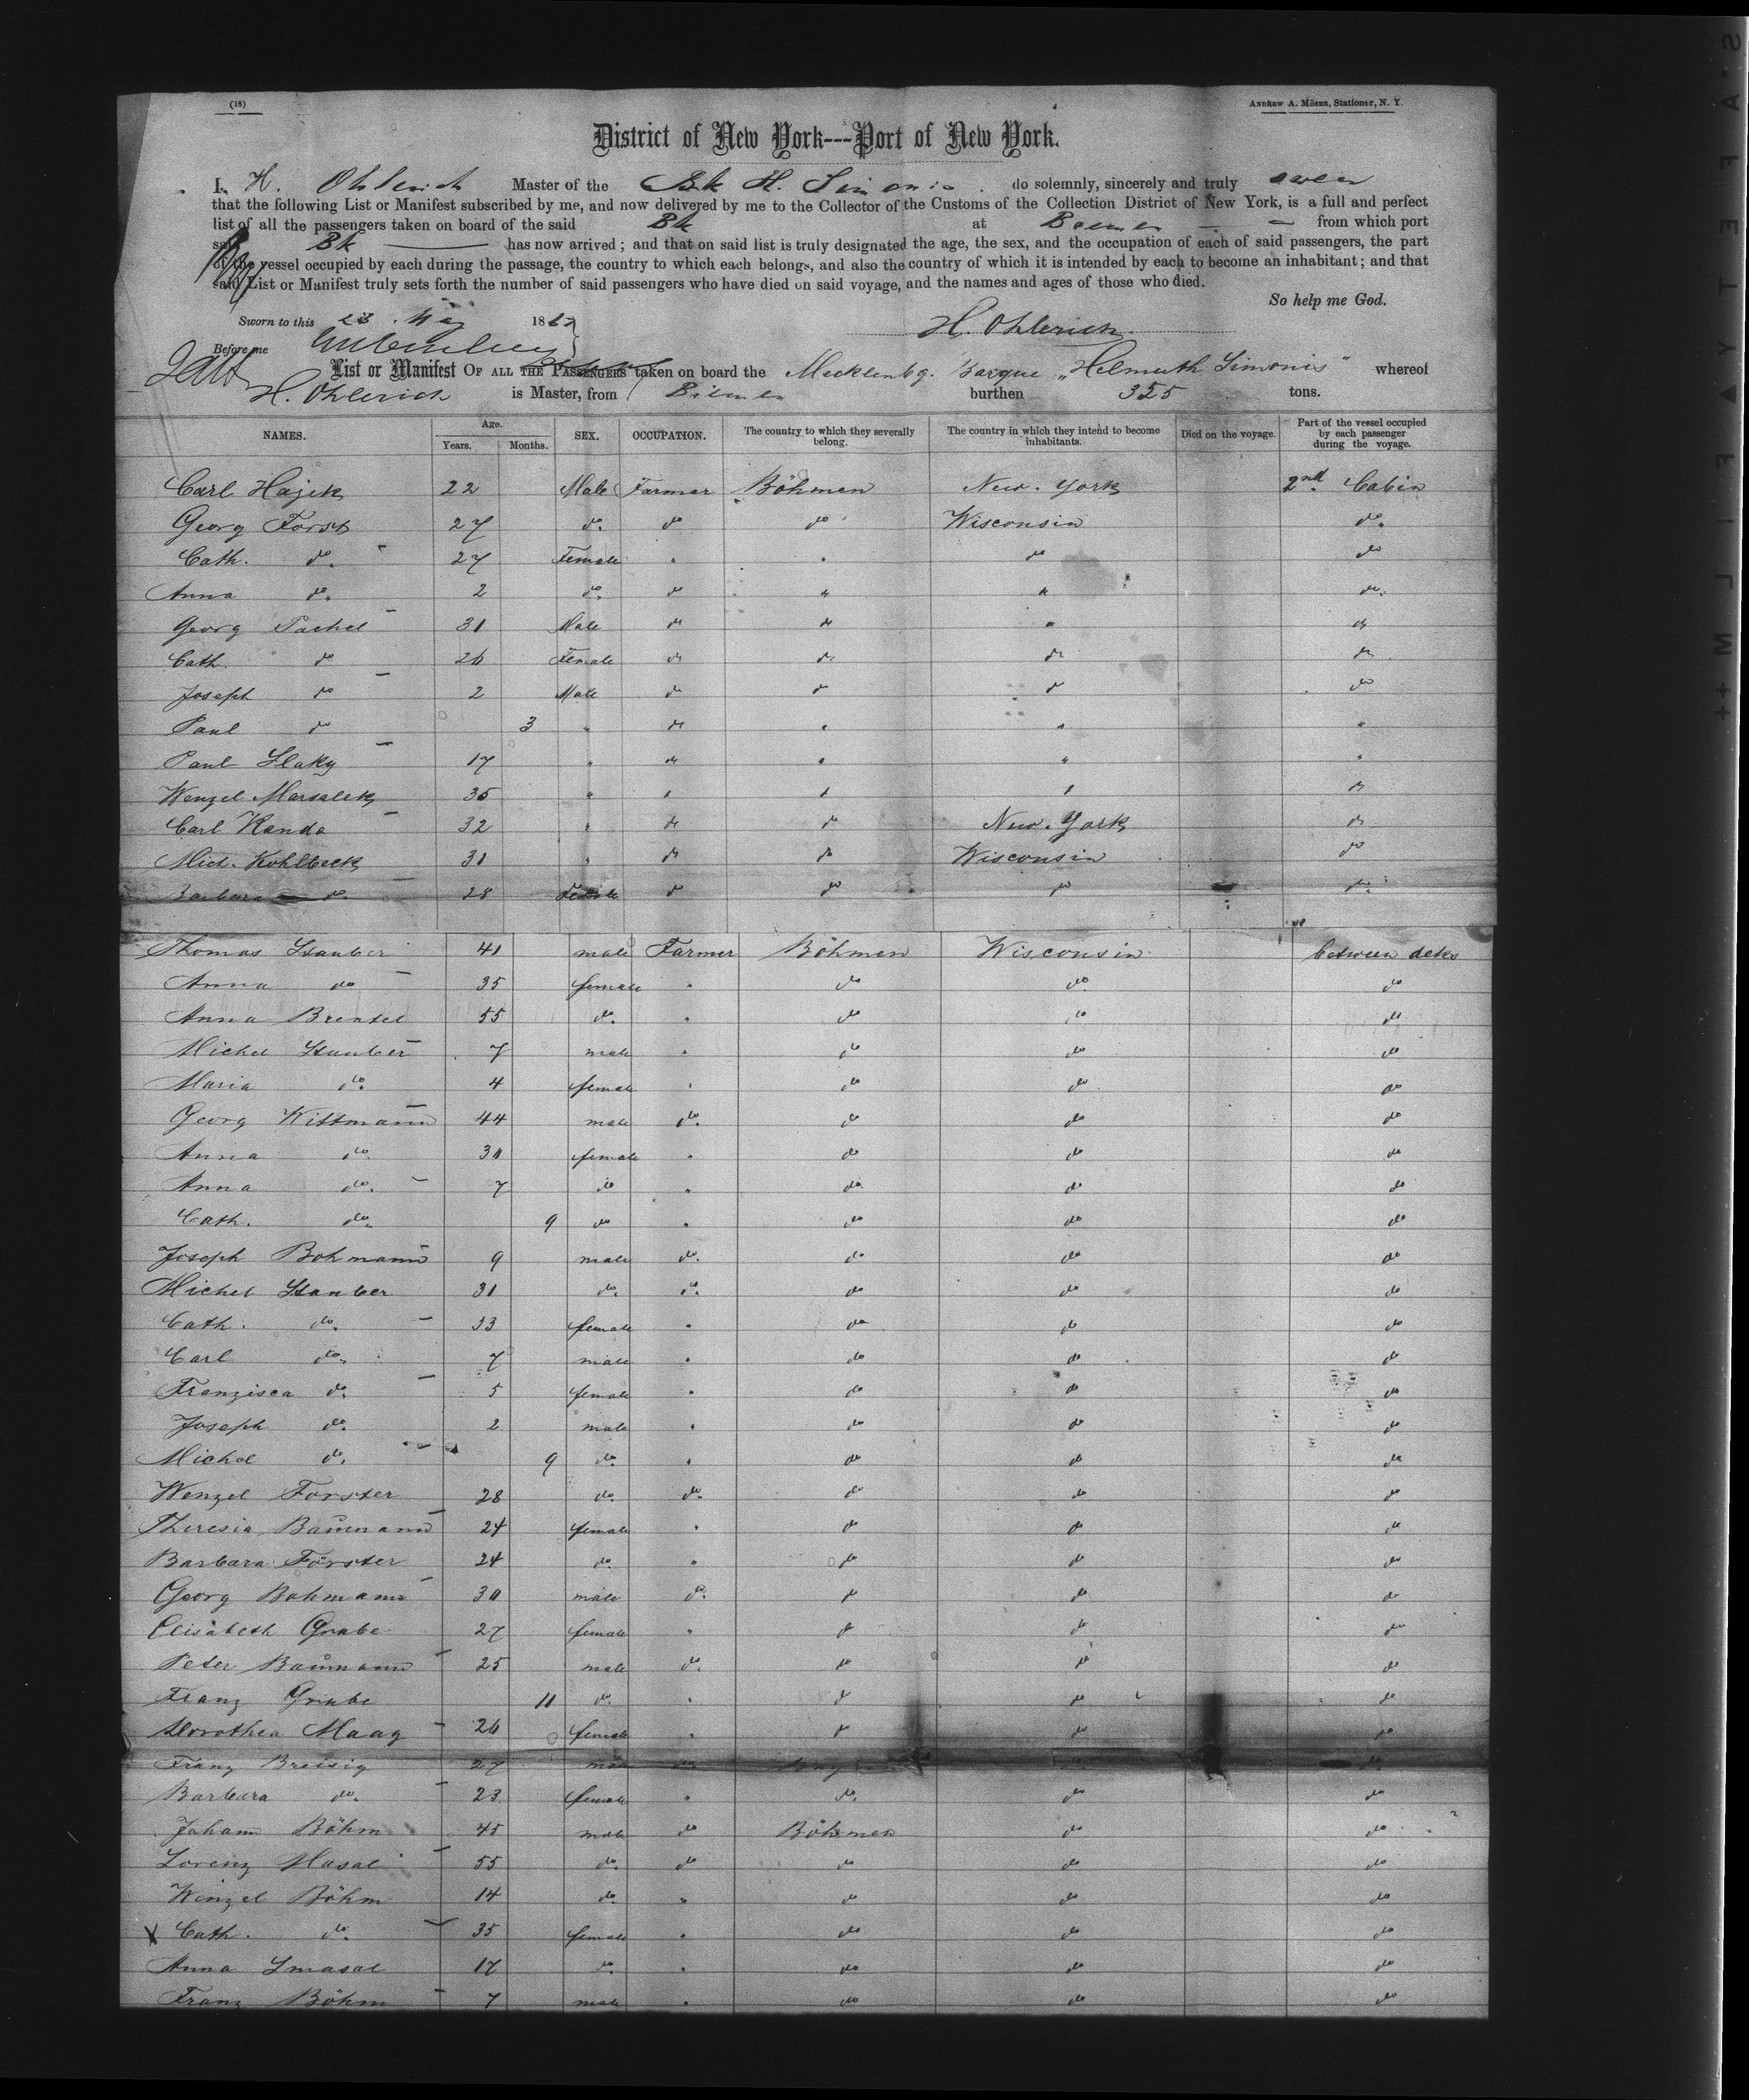 (18)
ANDREW A. MÖSER, Stationer, N. Y.
District of New York---Port of New York.
I, H. Ohlerich Master of the Bk H. Simonis do solemnly, sincerely and truly swear
that the following List or Manifest subscribed by me, and now delivered by me to the Collector of the Customs of the Collection District of New York, is a full and perfect
list of all the passengers taken on board of the said Bk at Bremen from which port
said Bk has now arrived; and that on said list is truly designated the age, the sex, and the occupation of each of said passengers, the part
of the vessel occupied by each during the passage, the country to which each belongs, and also the country of which it is intended by each to become an inhabitant; and that
said List or Manifest truly sets forth the number of said passengers who have died on said voyage, and the names and ages of those who died.
So help me God.
Sworn to this 23 May 1867
H. Ohlerich
Before me
List or Manifest OF ALL THE PASSENGERS taken on board the Mecklenbg. Barque „Helmuth Simonis" whereof
H. Ohlerich is Master, from Bremen burthen 325 tons.
NAMES. Age. Years. Months. SEX. OCCUPATION. The country to which they severally belong. The country in which they intend to become inhabitants. Died on the voyage. Part of the vessel occupied by each passenger during the voyage.
Carl Hajek 22 Male Farmer Böhmen New-York 2nd Cabin
Georg Forst 27 do. do do Wisconsin do.
Cath. do. 27 Female " " do do
Anna do. 2 do. do " " do.
Georg Pachel 31 Male do do " do
Cath. do 26 Female do do do do
Joseph do 2 Male do do do do
Paul do 3 " do " " "
Paul Slaky 17 " do " " "
Wenzel Marsalek 35 " " " " do
Carl Kanda 32 " do do New-York do
Mich. Kohlbeck 31 " do do Wisconsin do
Barbara do. 28 Female do do do do.
Thomas Stauber 41 male Farmer Böhmen Wisconsin between deks
Anna do 35 female " do do do
Anna Brentel 55 do. " do do do
Michel Stauber 7 male " do do do
Maria do. 4 female " do do do
Georg Wittmann 44 male do. do do do
Anna do. 30 female " do do do
Anna do. 7 do " do do do
Cath. do. 9 do " do do do
Joseph Bohmann 9 male do. do do do
Michel Stauber 31 do. do. do do do
Cath. do. 33 female " do do do
Carl do. 7 male " do do do
Franzisca do. 5 female " do do do
Joseph do. 2 male " do do do
Michel do. 9 do. " do do do
Wenzel Forster 28 do. do. do do do
Theresia Baumann 24 female " do do do
Barbara Förster 24 do. " do do do
Georg Bohmann 30 male do. do do do
Elisabeth Grube 27 female " do do do
Peter Baumann 25 male do. do do do
Franz Grube 11 do. " do do do
Dorothea Maag 26 female " do do do
Franz Breisig 27 male do do. do.
Barbara do. 23 female " do. do do
Johann Böhm 45 male do Böhmen do do
Lorenz Masal 55 do. do do do do
Wenzel Böhm 14 do. " do do do
X Cath. do. 35 female " do do do
Anna Smasal 17 do. " do do do
Franz Böhm 7 male " do do do